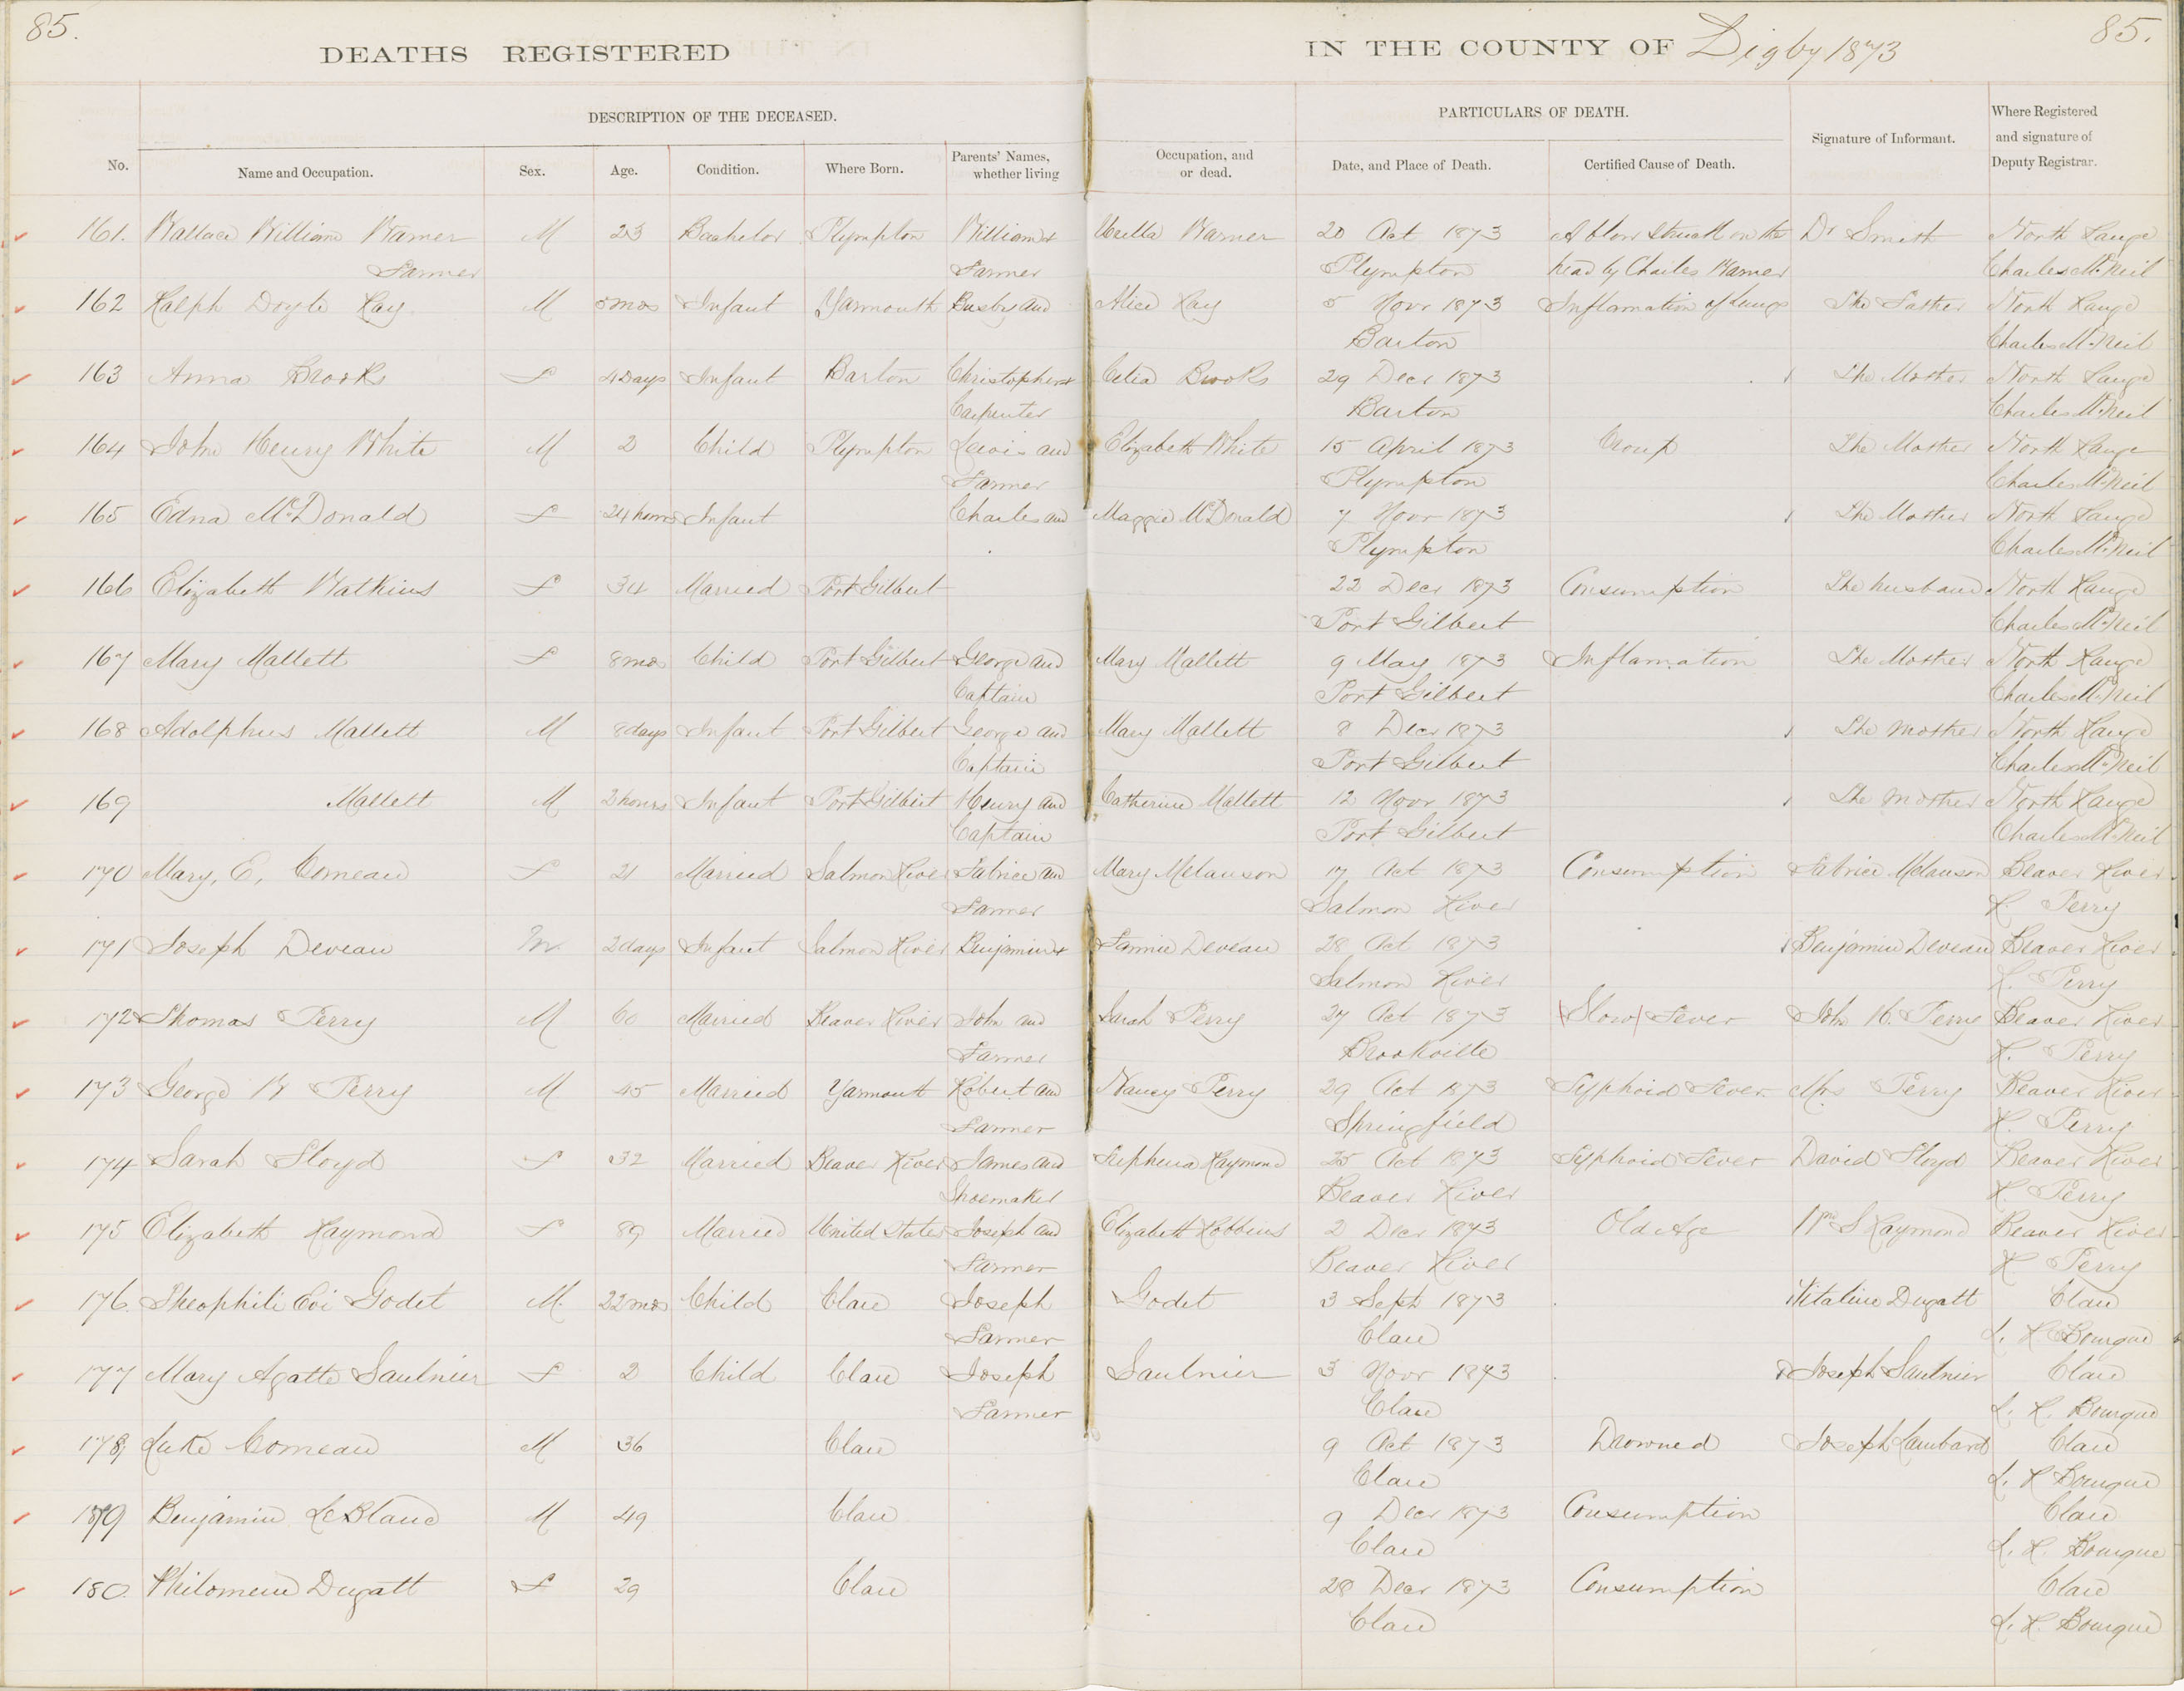 85.
85.
DEATHS REGISTERED IN THE COUNTY OF Digby 1873
DESCRIPTION OF THE DECEASED. PARTICULARS OF DEATH.
No. Name and Occupation. Sex. Age. Condition. Where Born. Parents' Names, whether living Occupation, and or dead. Date, and Place of Death. Certified Cause of Death. Signature of Informant. Where Registered and signature of Deputy Registrar.
161. Wallace William Warner M 23 Bachelor Plympton William & Warner 20 Oct 1873 A blow struck on the Dr Smith North Range
Farmer Farmer Plympton head by Charles Warner Charles McNeil
162 Ralph Doyle Ray M 5 mos Infant Yarmouth Busby and Alice Ray 5 Novr 1873 Inflamation of Lungs The Father North Range
Barton Charles McNeil
163 Anna Brooks F 4 Days Infant Barton Christopher & Celia Brooks 29 Decr 1873 The Mother North Range
Carpenter Barton Charles McNeil
164 John Henry White M 2 Child Plympton Lewis and Elizabeth White 15 April 1873 Croup The Mother North Range
Farmer Plympton Charles McNeil
165 Edna McDonald F 24 hours Infant Charles and Maggie McDonald 7 Novr 1873 The Mother North Range
Plympton Charles McNeil
166 Elizabeth Watkins F 34 Married Port Gilbert 22 Decr 1873 Consumption The husband North Range
Port Gilbert Charles McNeil
167 Mary Mallett F 8 mos Child Port Gilbert George and Mary Mallett 9 May 1873 Inflamation The Mother North Range
Captain Port Gilbert Charles McNeil
168 Adolphus Mallett M 8 days Infant Port Gilbert George and Mary Mallett 8 Decr 1873 The Mother North Range
Captain Port Gilbert Charles McNeil
169 Mallett M 2 hours Infant Port Gilbert Henry and Catherine Mallett 12 Novr 1873 The Mother North Range
Captain Port Gilbert Charles McNeil
170 Mary, E, Comeau F 21 Married Salmon River Fabrice and Mary Melanson 17 Oct 1873 Consumption Fabrice Melanson Beaver River
Farmer Salmon River H. Perry
171 Joseph Deveau M. 2 days Infant Salmon River Benjamin & Fannie Deveau 28 Oct 1873 Benjamin Deveau Beaver River
Salmon River H. Perry
172 Thomas Perry M 60 Married Beaver River John and Sarah Perry 27 Oct 1873 Slow Fever John H. Perry Beaver River
Farmer Brookville H. Perry
173 George W Perry M 45 Married Yarmouth Robert and Nancy Perry 29 Oct 1873 Typhoid Fever Mrs Perry Beaver River
Farmer Springfield H. Perry
174 Sarah Floyd F 32 Married Beaver River James and Raymond 25 Oct 1873 Typhoid Fever David Floyd Beaver River
Shoemaker Beaver River H. Perry
175 Elizabeth Raymond F 89 Married United States Joseph and Elizabeth Robbins 2 Decr 1873 Old Age Wm S Raymond Beaver River
Farmer Beaver River H Perry
176. Theophile Evi Godet M. 22 mos Child Clare Joseph Godet 3 Sept 1873 Vitaline Dugatt Clare
Farmer Clare L. H Bourque
177 Mary Agatte Saulnier F 2 Child Clare Joseph Saulnier 3 Novr 1873 Joseph Saulnier Clare
Farmer Clare L. H. Bourque
178 Luke Comeau M 36 Clare 9 Oct 1873 Drowned Joseph Lambard Clare
Clare L. H Bourque
179 Benjamin LeBlanc M 49 Clare 9 Decr 1873 Consumption Clare
Clare L. H. Bourque
180. Philomene Dugatt F 29 Clare 28 Decr 1873 Consumption Clare
Clare L. H. Bourque